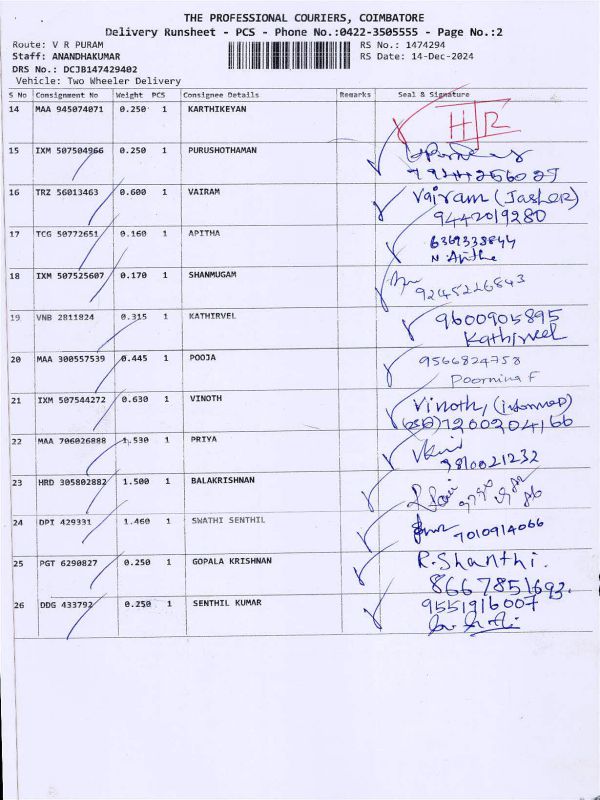 THE PROFESSIONAL COURIERS, COIMBATORE
Delivery Runsheet - PCS - Phone No.:0422-3505555 - Page No.:2
Route: V R PURAM RS No.: 1474294
Staff: ANANDHAKUMAR RS Date: 14-Dec-2024
DRS No.: DCJB147429402
Vehicle: Two Wheeler Delivery
S No Consignment No Weight PCS Consignee Details Remarks Seal & Signature
14 MAA 945074071 0.250 1 KARTHIKEYAN
H R
15 IXM 507504966 0.250 1 PURUSHOTHAMAN
16 TRZ 56013463 0.600 1 VAIRAM Vairam (Jasher)
9442019280
17 TCG 50772651 0.160 1 APITHA 6369339844
N. Apitha
18 IXM 507525607 0.170 1 SHANMUGAM
9245226843
19 VNB 2811824 0.315 1 KATHIRVEL 9600905895
Kathirvel
20 MAA 300557539 0.445 1 POOJA 9566824758
Poornima F
21 IXM 507544272 0.630 1 VINOTH Vinoth, (informed)
7200204166
22 MAA 706026888 1.530 1 PRIYA
9810021232
23 HRD 305802882 1.500 1 BALAKRISHNAN
24 DPI 429331 1.460 1 SWATHI SENTHIL
7010914066
25 PGT 6290827 0.250 1 GOPALA KRISHNAN R. Shanthi.
8667851693.
26 DDG 433792 0.250 1 SENTHIL KUMAR 9551916007